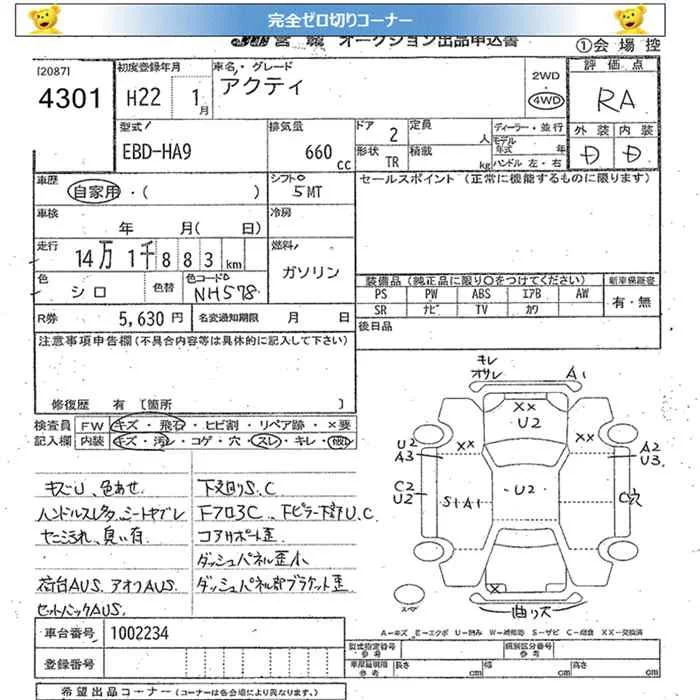 完全ゼロ切りコーナー
オークション出品申込書
①会場控
[2087]
4301
初度登録年月
H22 1月
車名・グレード
アクティ
2WD
4WD
評価点
RA
外装 内装
D D
型式
EBD-HA9
排気量
660 cc
ドア 2
定員 人
ディーラー・並行
モデル年式 年
形状 TR
積載 kg
ハンドル 左・右
車歴
自家用・( )
シフト
5MT
セールスポイント (正常に機能するものに限ります)
車検
年 月( 日)
冷房
走行
14万1千883km
燃料
ガソリン
色
シロ
色替
色コード
NH578
装備品 (純正品に限り〇をつけてください)
新車保証書
PS PW ABS エアB AW
SR ナビ TV カワ
有・無
R券 5,630円
名変通知期限 月 日
後日品
注意事項申告欄 (不具合内容等は具体的に記入して下さい)
修復歴 有 [箇所 ]
検査員記入欄
FW キズ・飛石・ヒビ割・リペア跡・×要
内装 キズ・汚レ・コゲ・穴・スレ・キレ・破レ
キズU、色あせ
下廻りS.C
ハンドルスレ
シートヤブレ
Fフロア3C、FピラーU.C
ヤニ汚れ、臭い有
コアサポート歪
ダッシュパネル歪小
荷台AUS、アオリAUS
ダッシュパネル部ブラケット歪
セットバックAUS
キレ
オサレ
A1
XX
U2
XX
XX
U2
A3
A2
U3
C2
U2
S1A1
U2
C穴
X
曲り大
スペア
A-キズ E-エクボ U-凹み W-補修跡 S-サビ C-腐食 XX-交換済
車台番号 1002234
登録番号
型式指定番号 参考
類別区分番号 参考
車庫証明用 参考
長さ cm
幅 cm
高さ cm
希望出品コーナー (コーナーは各会場により異なります。)